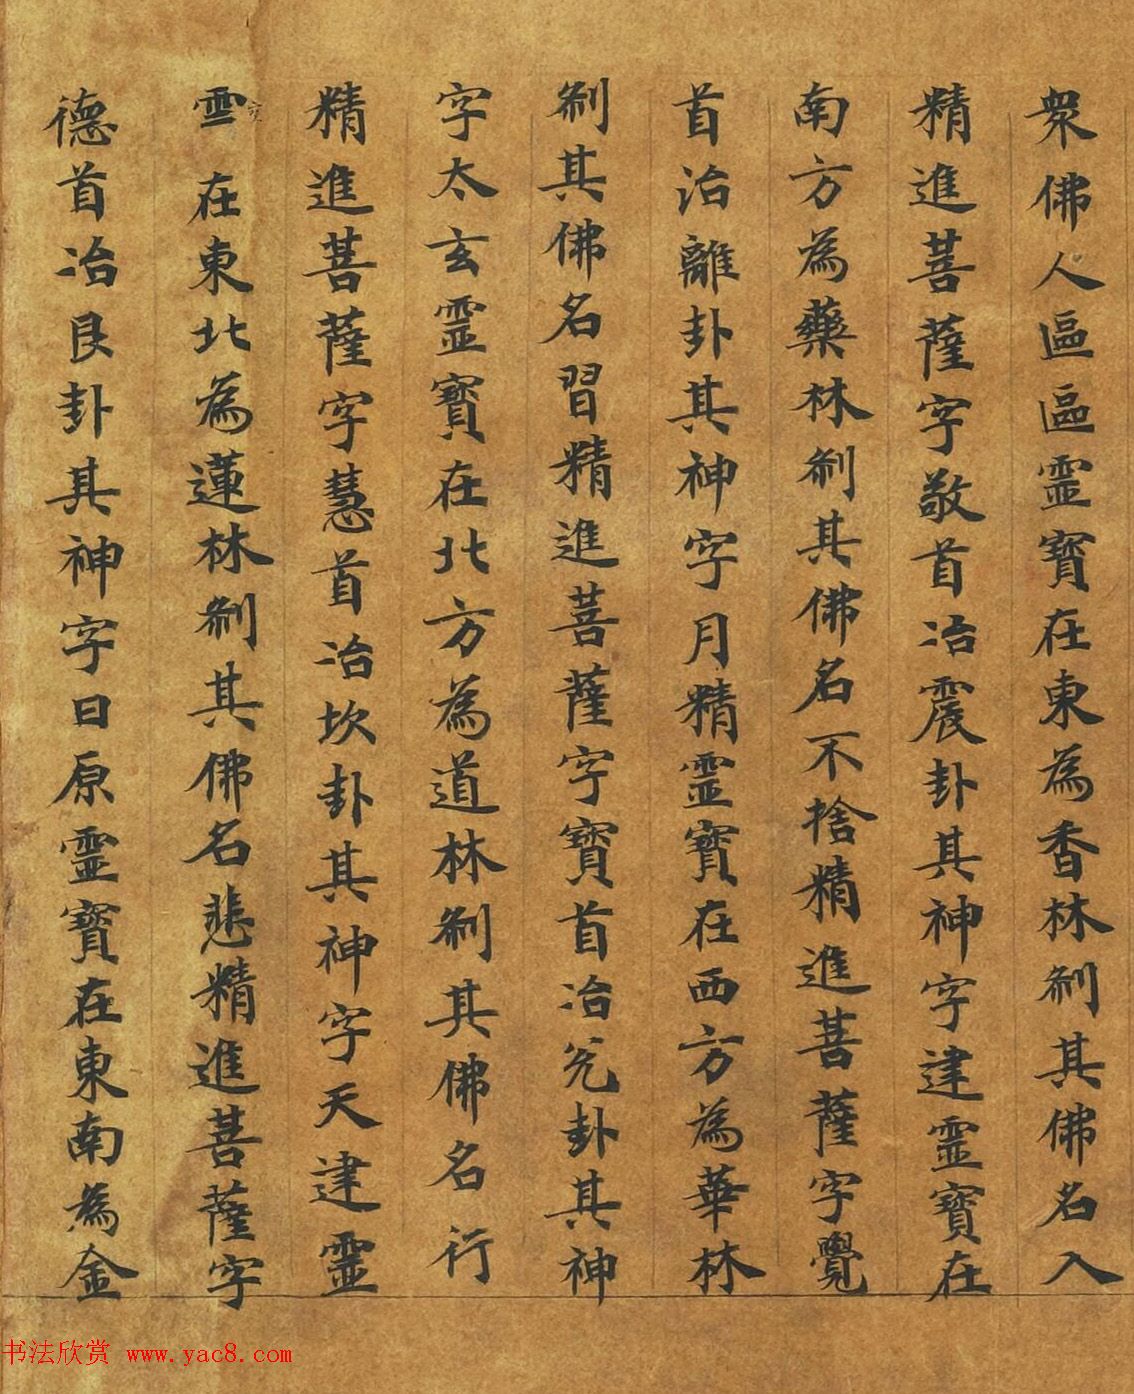 衆佛人區區靈寶在東為香林剎其佛名入
精進菩薩字敬首冶震卦其神字建靈寶在
南方為藥林剎其佛名不捨精進菩薩字覺
首治離卦其神字月精靈寶在西方為華林
剎其佛名習精進菩薩字寶首冶兊卦其神
字太玄靈寶在北方為道林剎其佛名行
精進菩薩字慧首冶坎卦其神字天建靈
雲在東北為蓮林剎其佛名悲精進菩薩字
德首冶艮卦其神字日原靈寶在東南為金
书法欣赏 www.yac8.com